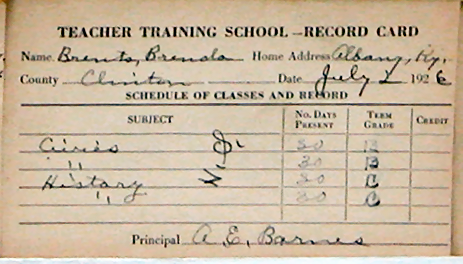 TEACHER TRAINING SCHOOL—RECORD CARD
Name Brents, Brenda Home Address Albany, Ky.
County Clinton Date July 2 1926
SCHEDULE OF CLASSES AND RECORD
SUBJECT No. DAYS PRESENT TERM GRADE CREDIT
Civics 30 B
" 30 B
History 30 C
" 30 C
Principal A. E. Barnes